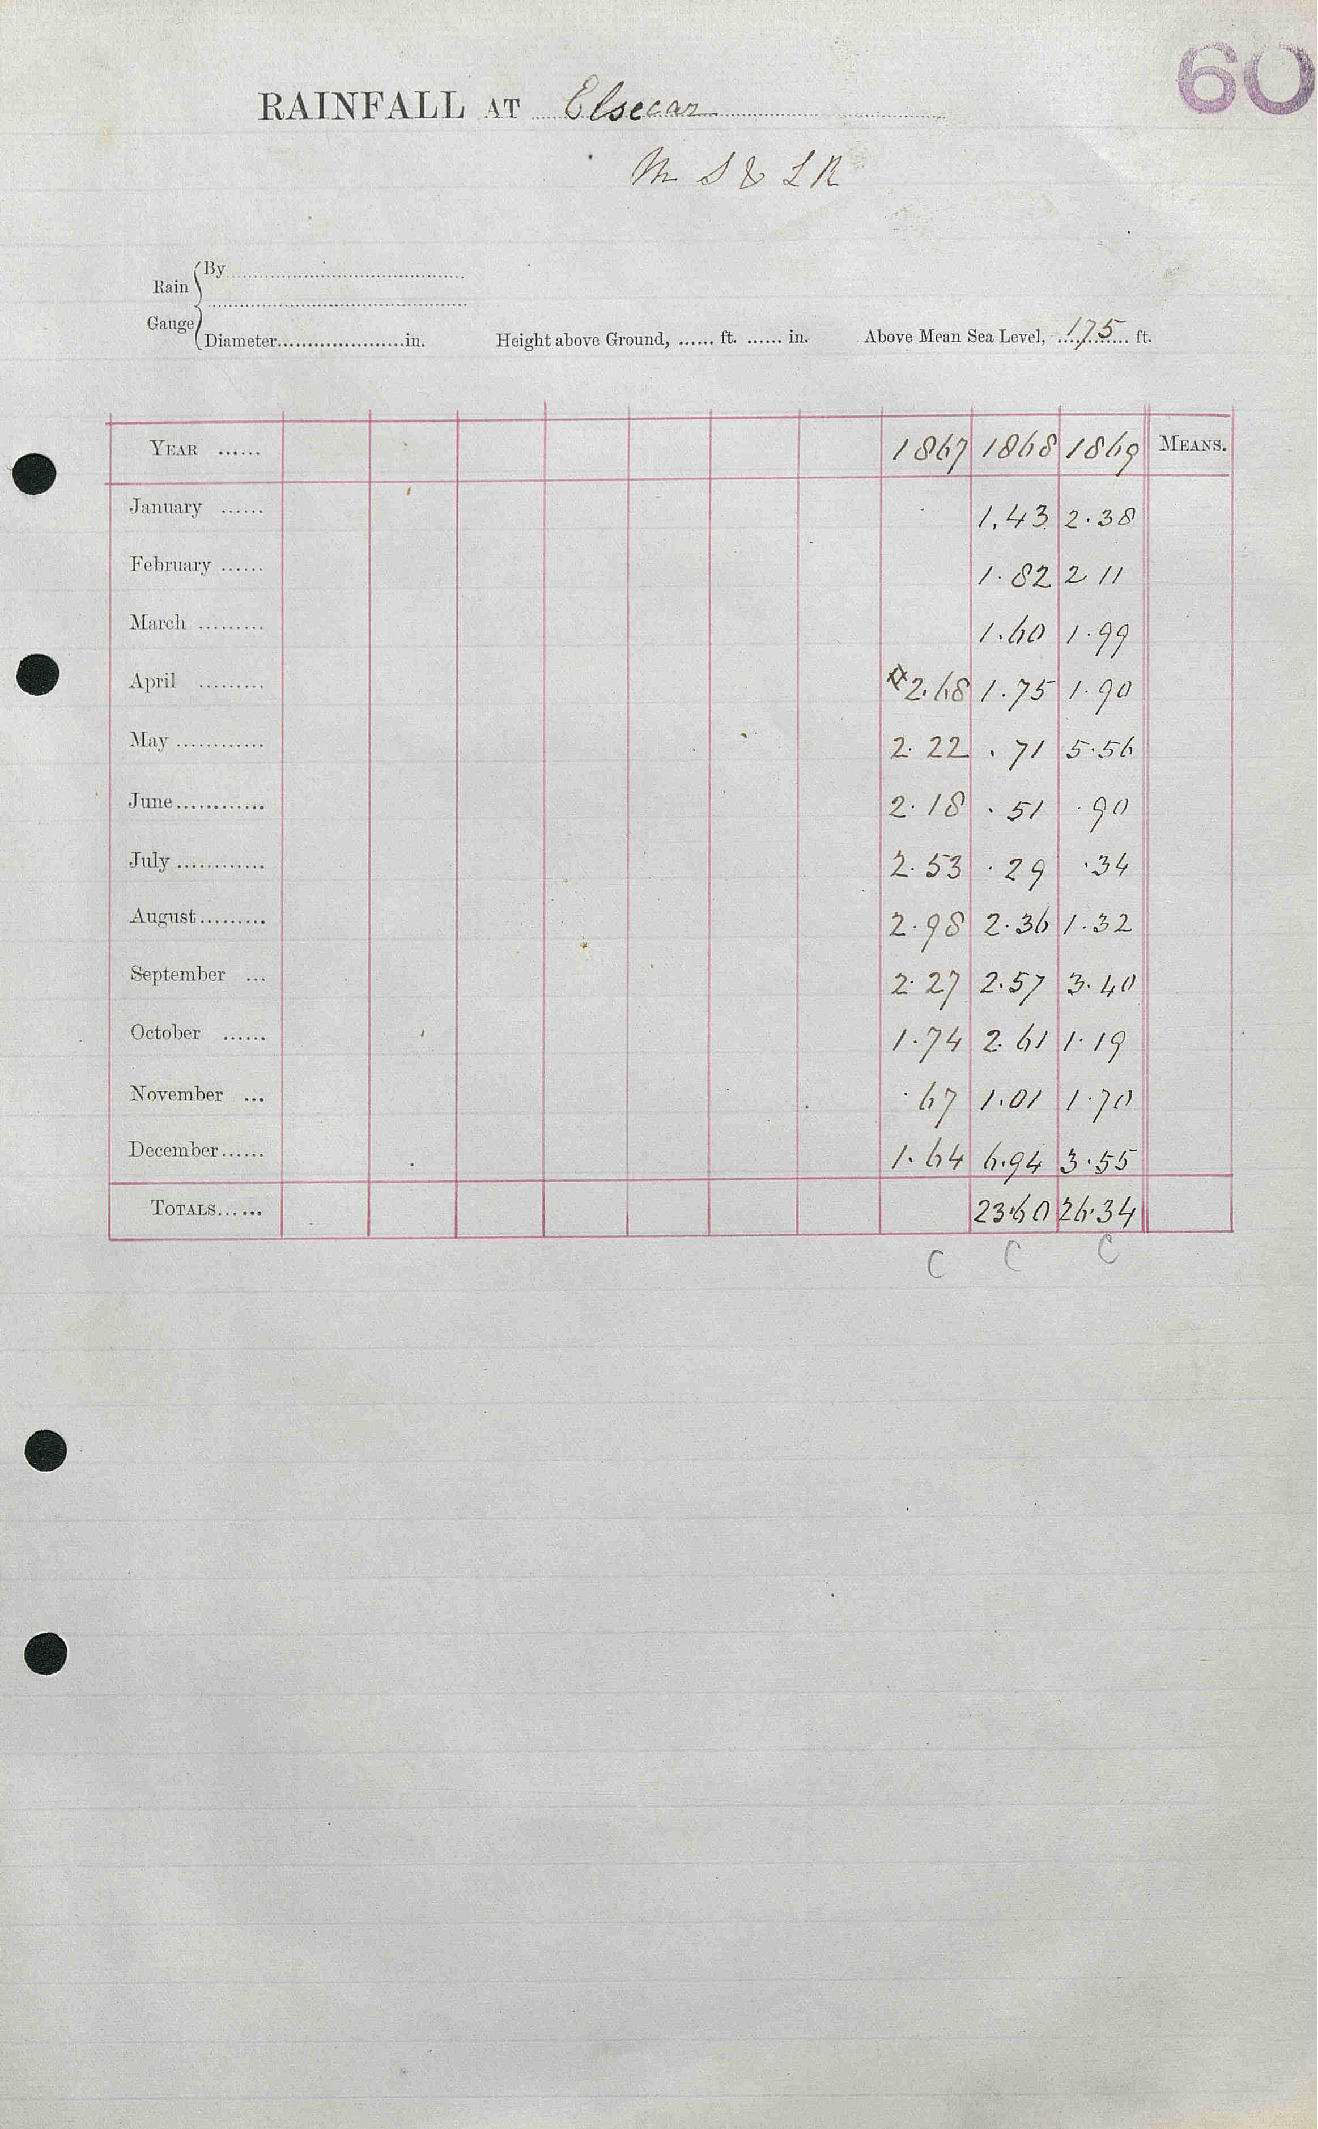 60
RAINFALL AT Elsecar
M S & L R
Rain Gauge { By
Diameter.....................in. Height above Ground, ...... ft. ...... in. Above Mean Sea Level, 175 ft.
YEAR ...... 1867 1868 1869 MEANS.
January ...... 1.43 2.38
February ...... 1.82 2 11
March ......... 1.60 1.99
April ......... 2.68 1.75 1.90
May ............ 2.22 .71 5.56
June............ 2.18 .51 .90
July ............ 2.53 .29 .34
August......... 2.98 2.36 1.32
September ... 2.27 2.57 3.40
October ...... 1.74 2.61 1.19
November ... .67 1.01 1.70
December...... 1.64 6.94 3.55
TOTALS...... 23.60 26.34
C C C